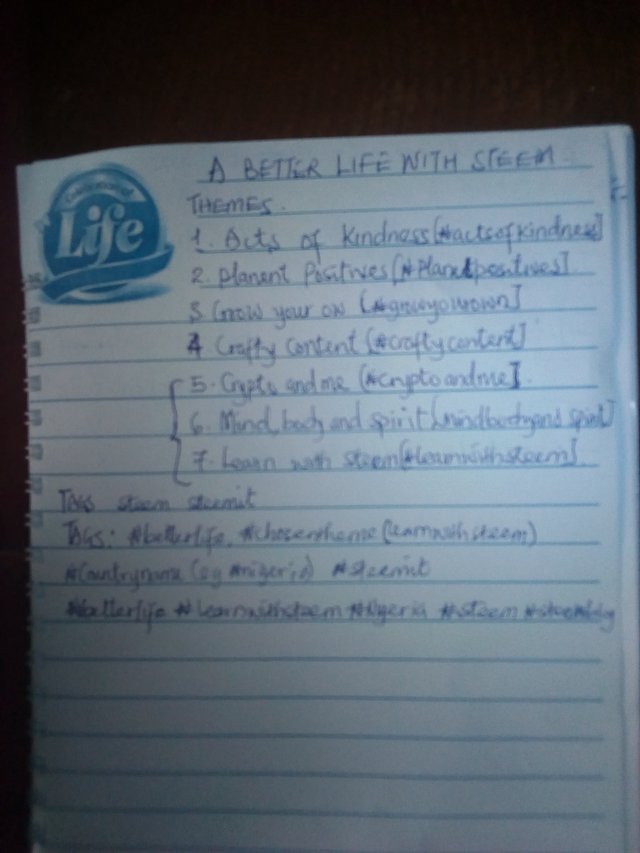 A BETTER LIFE WITH STEEM
THEMES.
Life
1. Acts of Kindness [#actsofkindness]
2. planent Positives [#Planetpositives]
3. Grow your own [#growyourown]
4 Crafty Content [#craftycontent]
5. Crypto and me [#cryptoandme].
6. Mind, body and spirit [mindbodyand spirit]
7. Learn with steem [#learnwithsteem].
TAGS steem steemit
TAGS: #betterlife, #chosentheme (learnwithsteem)
#Countryname (eg #nigeria) #steemit
#betterlife #learnwithsteem #steem